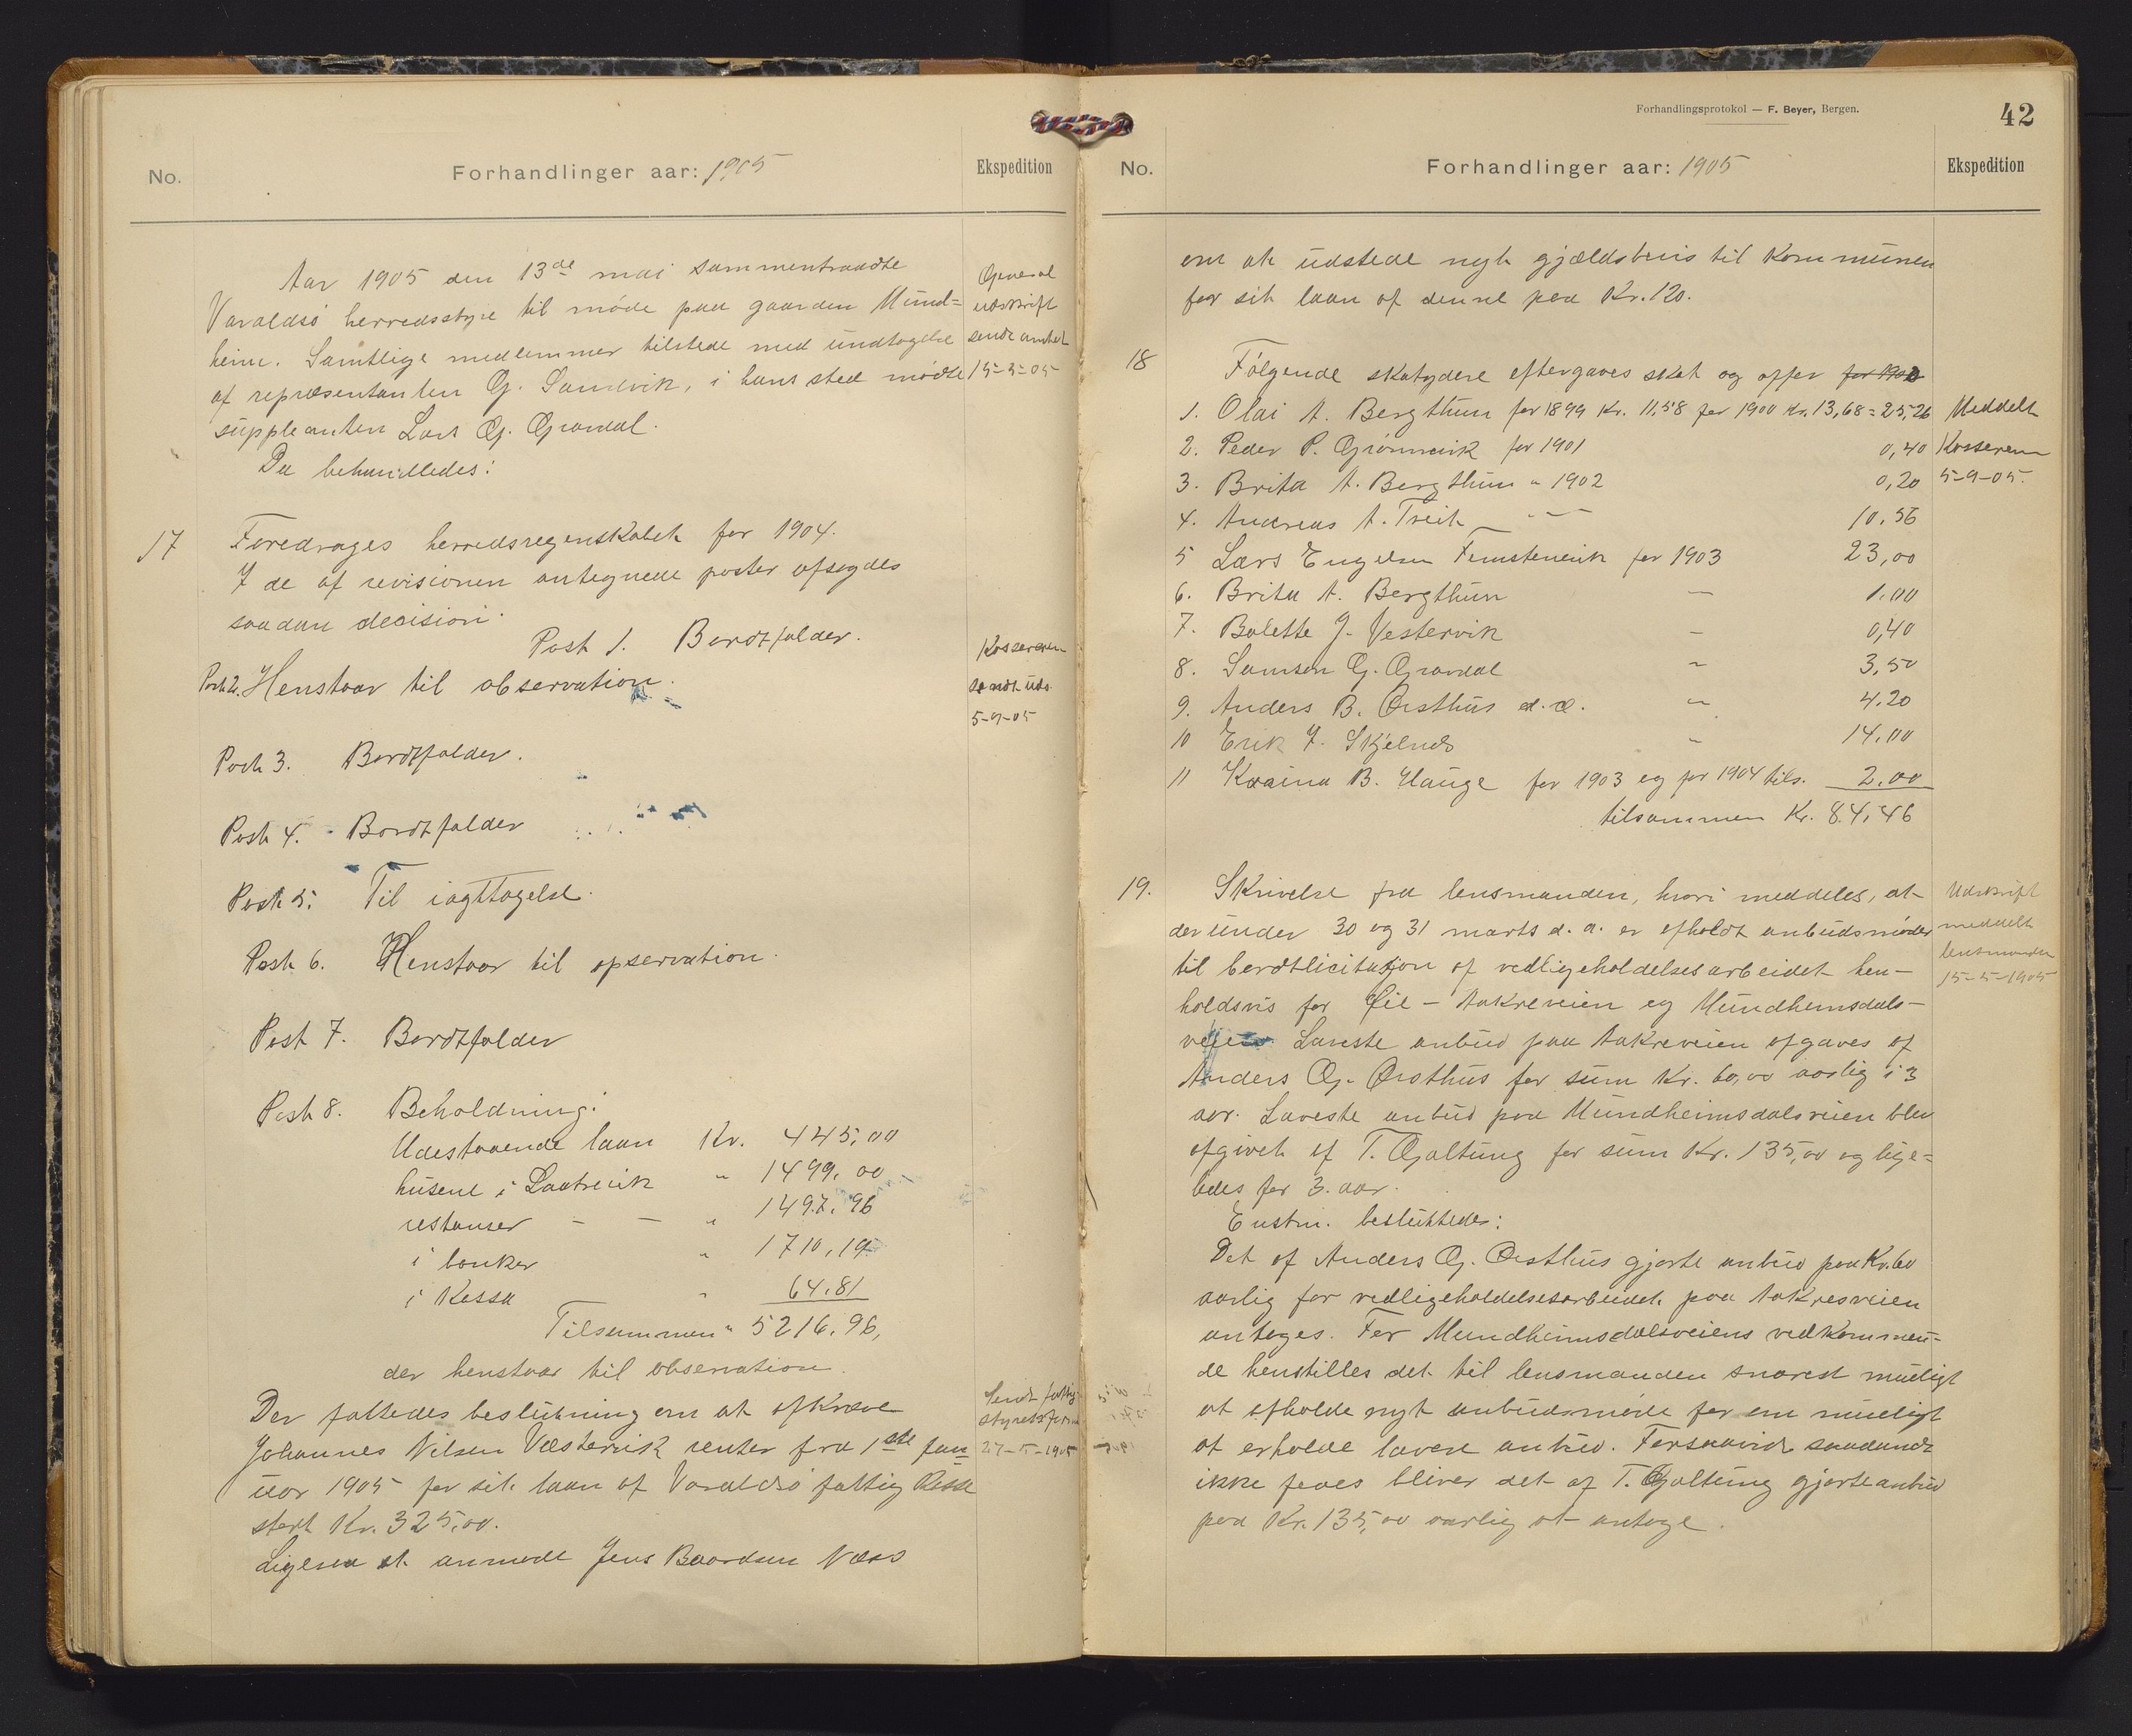 No.
Forhandlinger aar: 1905
Ekspedition
Aar 1905 den 13de mai sammentraadte
Varaldsö herredsstyre til möde paa gaarden Mund=
heim. Samtlige medlemmer tilstede med undtagelse
af repræsentanten G. Sandvik, i hans sted mödte
suppleanten Lars G. Gravdal.
Da behandledes:
General
udskrift
sendt amtet
15-5-05
17
Foredrages herredsregnskabet for 1904.
I de af revisionen antegnede poster afsagdes
saadan decision:
Post 1. Bortfalder.
Post 2. Henstaar til observation.
Kassereren
sendt uds.
5-9-05
Post 3. Bortfalder.
Post 4. Bortfalder
Post 5. Til iagttagelse.
Post 6. Henstaar til opservation.
Post 7. Bortfalder
Post 8. Beholdning:
Udestaaende laan Kr. 445,00
husene i Laatrevik " 1499,00
restanser - - " 1497,96
i banker " 1710,19
i Kassa " 64.81
Tilsammen " 5216,96,
der henstaar til observation.
Der fattedes beslutning om at afkræve
Johannes Nilsen Væstervik renter fra 1ste jan
uar 1905 for sit laan af Varaldsö fattig Kasse
stort Kr. 325,00.
Ligesaa at anmode Jens Baardsen Næss
Sendt fattig
styrets form
27-5-1905
Forhandlingsprotokol — F. Beyer, Bergen.
42
No.
Forhandlinger aar: 1905
Ekspedition
om at udstede nyt gjældsbevis til Kommunen
for sit laan af denne paa Kr. 120.
18
Fölgende skatydere eftergaves skat og opfer for 1900
1. Olai A. Bergthun for 1899 Kr. 11.58 for 1900 Kr. 13,68 = 25,26
2. Peder P. Grönnevik for 1901 0,40
3. Brita A. Bergthun " 1902 0,20
4. Andreas A. Treit - " - 10.56
5 Lars Engelsen Femstenevik for 1903 23,00
6. Brita A. Bergthun - 1.00
7. Bolette J. Vestervik - 0,40
8. Samson G. Gravdal " 3,50
9. Anders B. Ørsthus d.æ. " 4.20
10 Erik J. Skjelnes - 14.00
11 Kraina B. Hauge for 1903 og for 1904 tils. 2.00
tilsammen Kr. 84,46
Meddelt
Kasseren
5-9-05.
19.
Skrivelse fra lensmanden, hvori meddeles, at
der under 30 og 31 marts d. a. er afholdt anbudsmöder
til bortlicitasjon af vedligeholdelsesarbeidet hen-
holdsvis for Øie - Aakreveien og Mundheimsdals-
veien. Laveste anbud paa Aakreveien afgaves af
Anders G. Ørsthus for sum Kr. 60,00 aarlig i 3
aar. Laveste anbud paa Mundheimsdalsveien blev
afgivet af T. Galtung for sum Kr. 135,00 og lige=
ledes for 3. aar.
Enstm. besluttedes:
Det af Anders G. Ørsthus gjorte anbud paa Kr. 60
aarlig for vedligeholdelsesarbeidet paa Aakresveien
antages. For Mundheimsdalsveiens vedkommen-
de henstilles det til lensmanden snarest mueligt
at afholde nyt anbudsmöde for om mueligt
at erholde lavere anbud. Forsaavidt saadant
ikke faaes bliver det af T. Galtung gjorte anbud
paa Kr. 135,00 aarlig at antage.
Udskrift
meddelt
lensmanden
15-5-1905